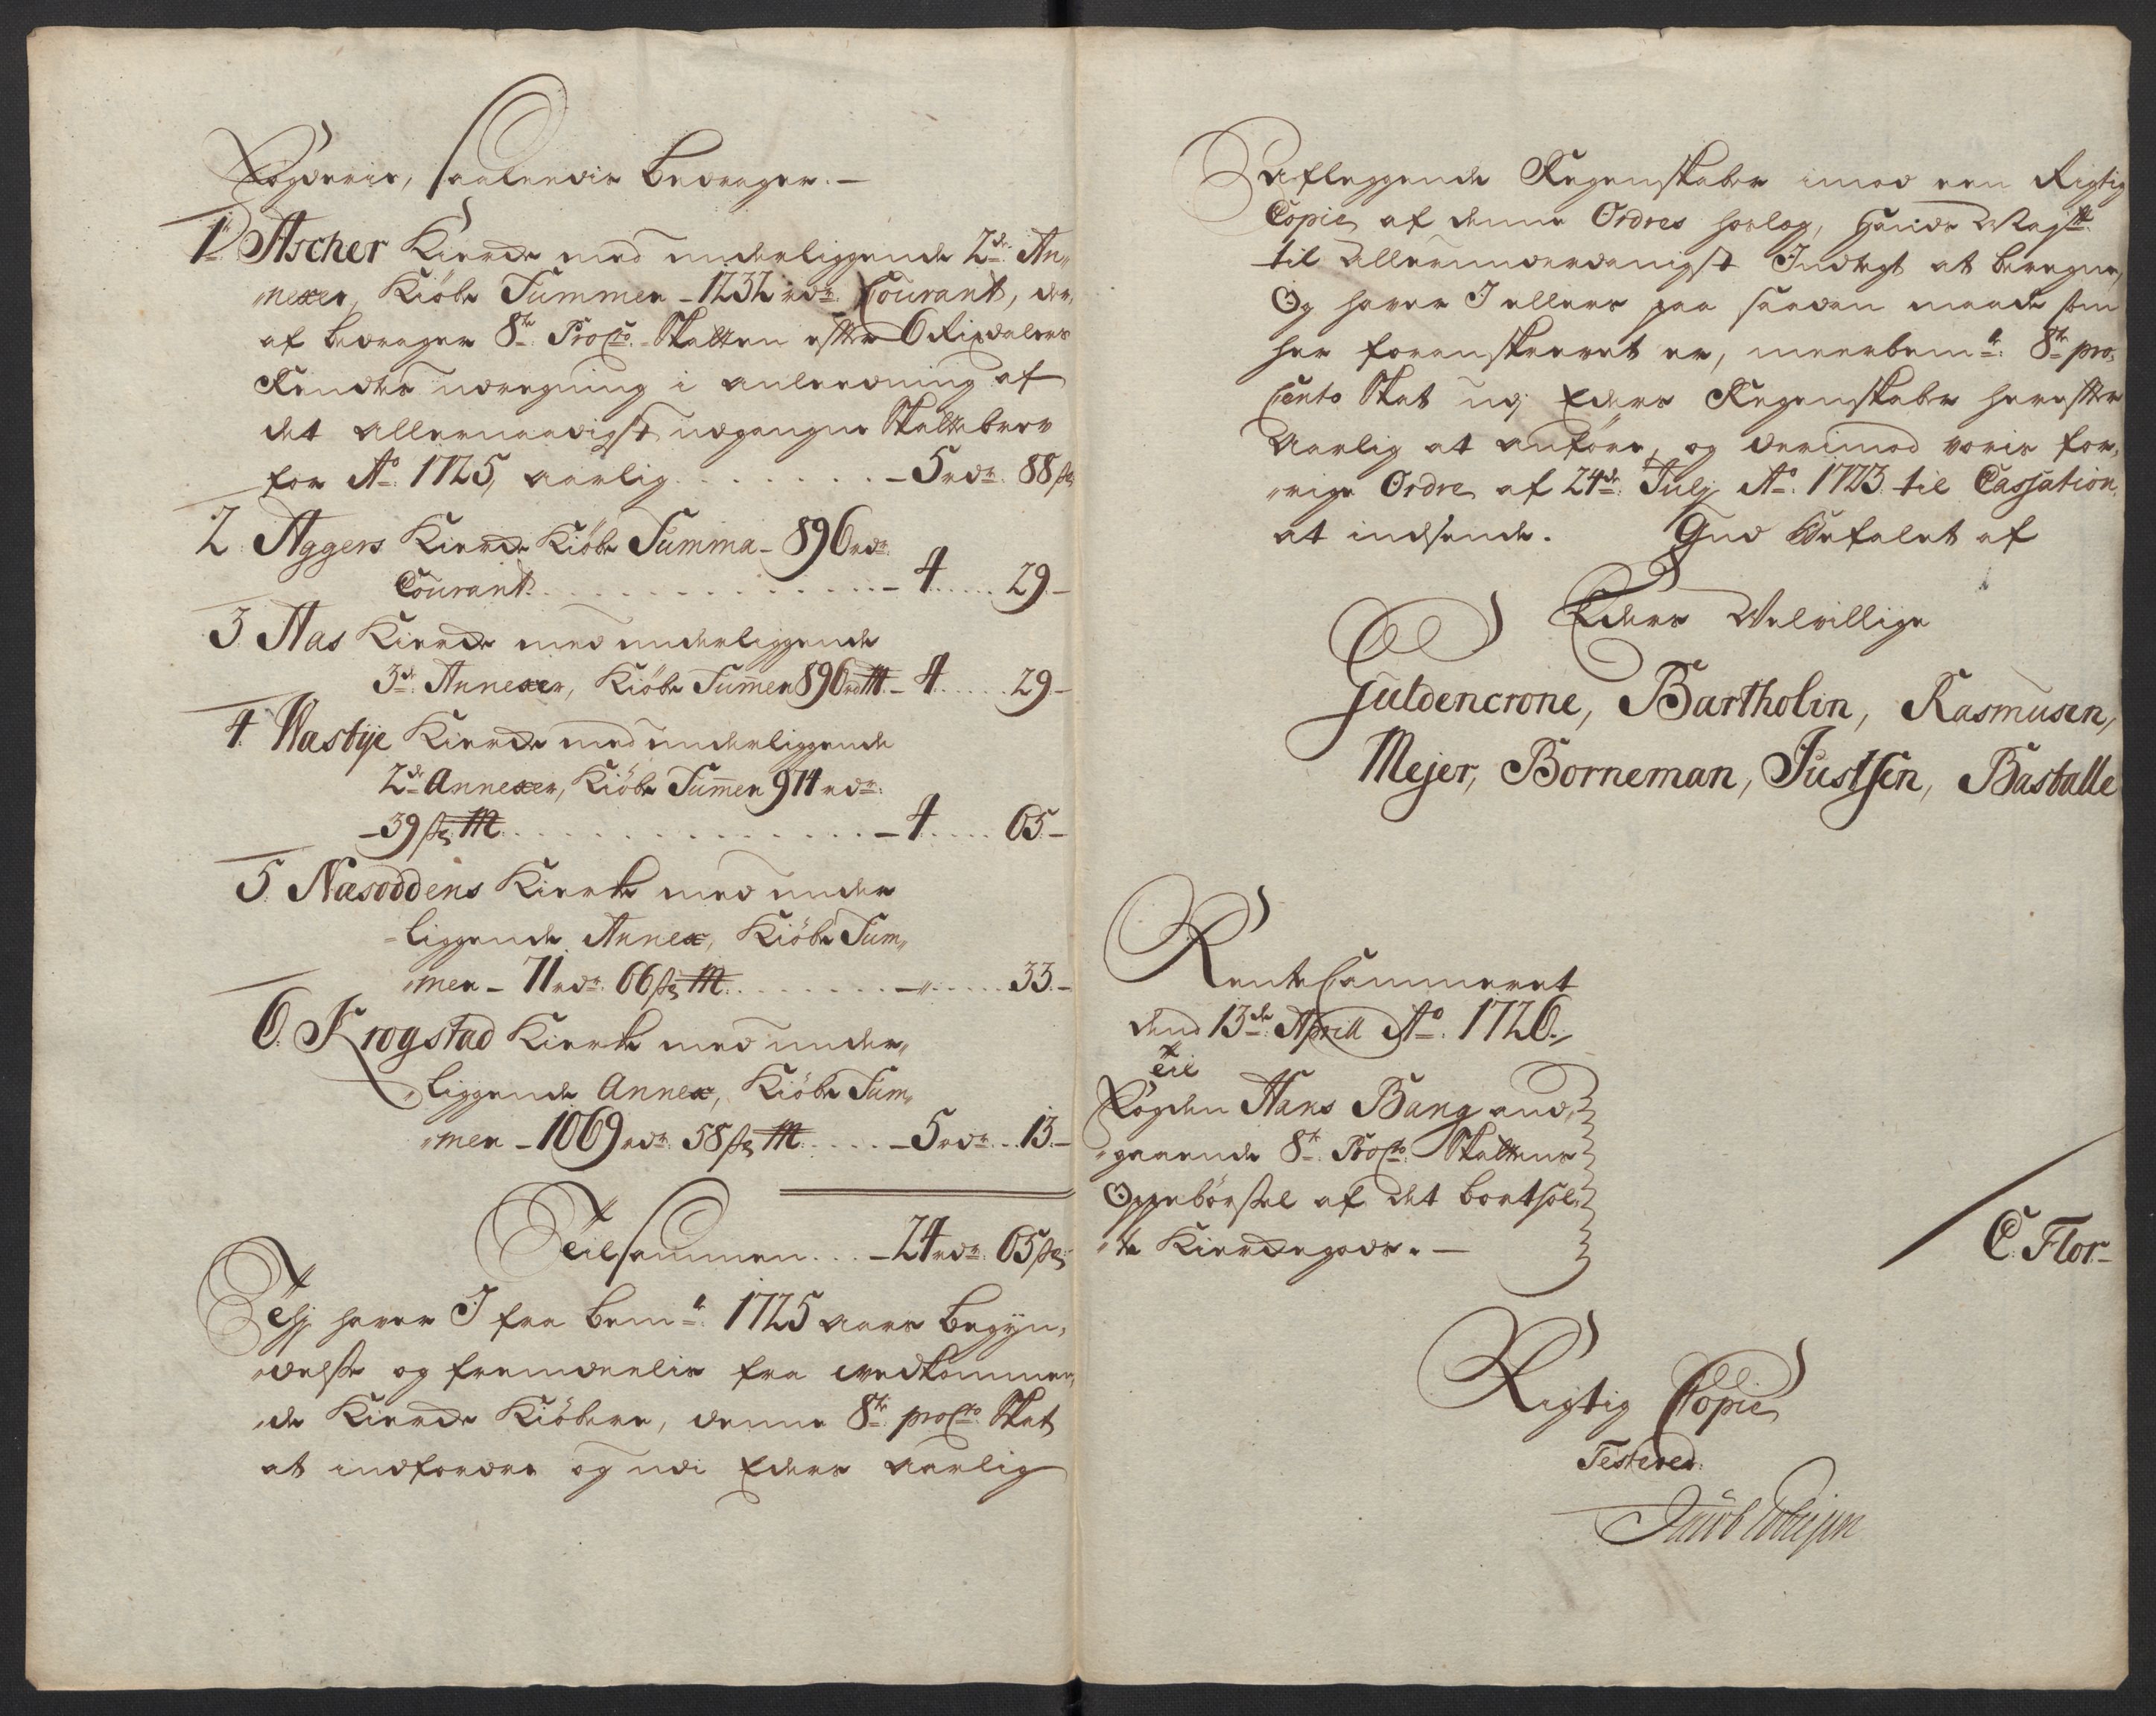 Fogderie, saaledis bedrager.—
1. Ascher Kiercke med underliggende 2de An„
„nexer, Kiöbe Summen - 1232 rdr. Courant, der„
af bedrager 8te ProCto. Skatten efter 6 Rixdalers
Rendtes udregning i anledning af
det allernaadigst udgangne Skattebrev
for Ao. 1725, aarlig . . . . . . . - 5 rdr. 88 s
2. Aggers Kiercke Kiöbe Summa - 896 rdr.
Courant . . . . . . . . . . . . - 4 . . . . 29 -
3. Aas Kiercke med underliggende
3de Annexer, Kiöbe Sum̄en 896 rd - 4 . . . . 29 -
4. Wastbye Kiercke med underliggende
2de Annexer, Kiöbe Sum̄en 974 rdr.
- 39 s . . . . . . . . . . . . . - 4 . . . . 65 -
5. Næsoddens Kierke med under
- liggende Annex, Kiöbe Sum„
„men - 71 rdr. 66 s . . . . . . . - „ . . . . 33 -
6. Krogstad Kierke med under„
„liggende Annex, Kiöbe Sum„
„men - 1069 rdr. 58 s . . . . . - 5 rdr. . . 13 -
Tilsammen . . . - 24 rdr. 65 s
Thj haver I fra bemte. 1725 aars begÿn„
„delse og fremdeelis fra wedkommen„
„de Kiercke Kiöbere, denne 8te. proCto. Skat
at indfordre og udi Eders aarlig
aflæggende Regenskaber imod een Rigtig
Copie af denne Ordres Forlæg, Hands Mayst.
til allerunderdanigst Indtegt at beregne,
Og haver I ellers paa saadan maade som
her foranskrevet er, meerbemte. 8te. pro„
Cento Skat udj Eders Regenskaber herefter
Aarlig at anföre, og derimod voris for„
„rige Ordre af 24de. Julj Ao. 1723 til Cassation
at indsende. Gud Befalet af
Eders Welvillige
Güldencrone, Bartholin, Rasmusen,
Mejer, Borneman, Justsen, Basballe
RenteCammeret
dend 13de. Aprill Ao. 1726.
Til
Fogden Hans Bang and„
„gaaende 8te. ProCto. Skattens
Oppebörsel af det bortsol„
„te Kierckegods. —
C: Flor -
Rigtig Copie
Testerer.